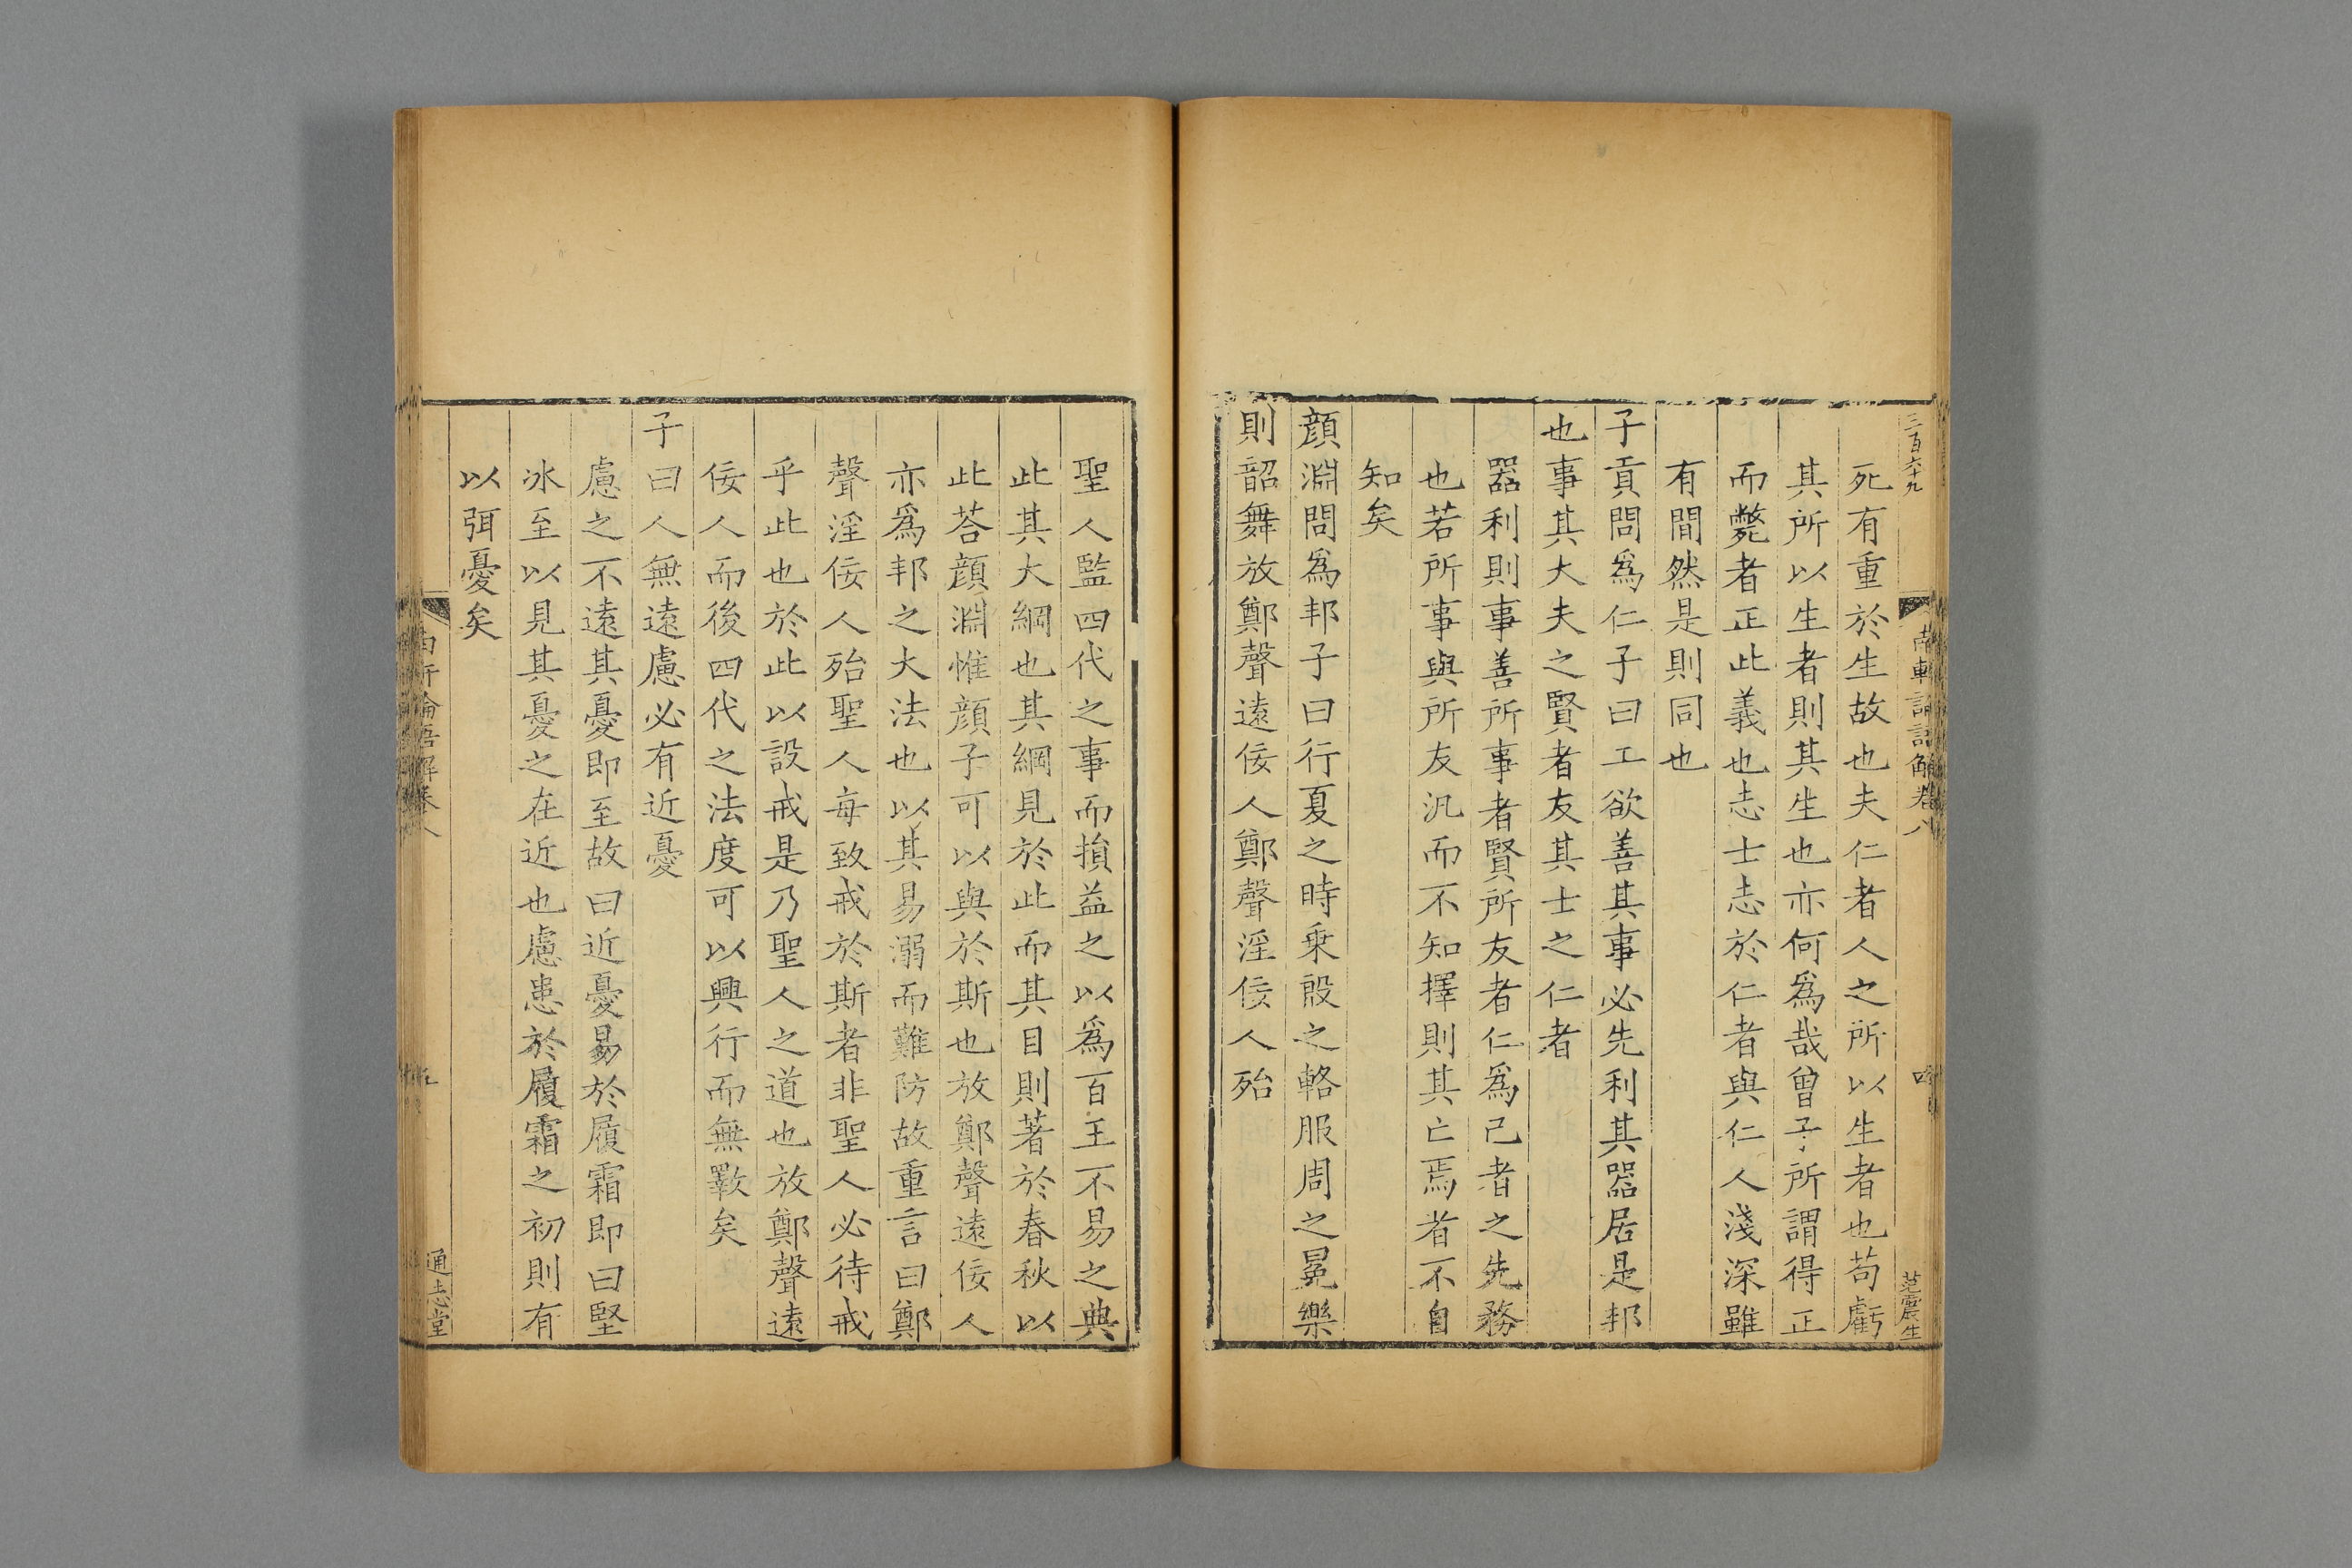 三百六十九
南軒論語解卷八
范震生
死有重於生故也夫仁者人之所以生者也苟虧
其所以生者則其生也亦何爲哉曾子所謂得正
而斃者正此義也志士志於仁者與仁人淺深雖
有間然是則同也
子貢問爲仁子曰工欲善其事必先利其器居是邦
也事其大夫之賢者友其士之仁者
器利則事善所事者賢所友者仁爲己者之先務
也若所事與所友汎而不知擇則其亡焉者不自
知矣
顔淵問爲邦子曰行夏之時乗殷之輅服周之冕樂
則韶舞放鄭聲遠佞人鄭聲淫佞人殆
聖人監四代之事而損益之以爲百王不易之典
此其大綱也其綱見於此而其目則著於春秋以
此荅顔淵惟顔子可以與於斯也放鄭聲遠佞人
亦爲邦之大法也以其易溺而難防故重言曰鄭
聲淫佞人殆聖人每致戒於斯者非聖人必待戒
乎此也於此以設戒是乃聖人之道也放鄭聲遠
佞人而後四代之法度可以興行而無斁矣
子曰人無遠慮必有近憂
慮之不遠其憂即至故曰近憂易於履霜即曰堅
冰至以見其憂之在近也慮患於履霜之初則有
以弭憂矣
南軒論語解卷八
通志堂